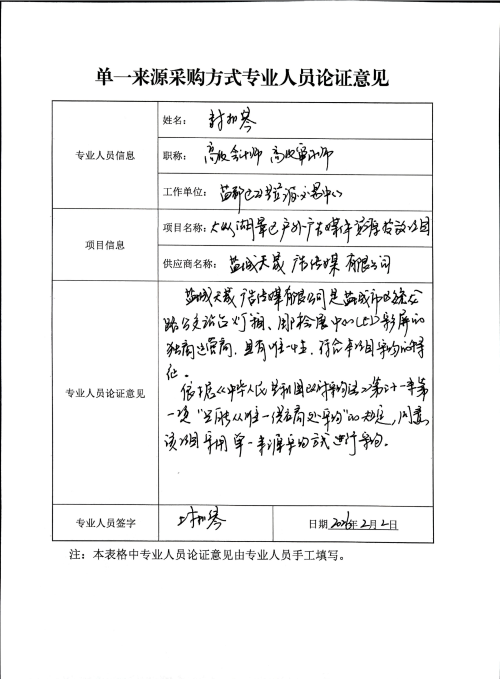 单一来源采购方式专业人员论证意见
专业人员信息
姓名：封加琴
职称：高级会计师 高级审计师
工作单位：盐都区公共资源交易中心
项目信息
项目名称：大纵湖景区户外广告媒体资源投放项目
供应商名称：盐城天晟广告传媒有限公司
专业人员论证意见
盐城天晟广告传媒有限公司是盐城市区
路公交站台灯箱、 中心LED彩屏的
独商运营商，具有唯一性，符合本项目采购的特
征。
依据《中华人民共和国政府采购法》第三十一条第
一项“只能从唯一供应商处采购”的规定，同意
该项目采用单一来源采购方式进行采购。
专业人员签字
封加琴
日期 2026年2月2日
注：本表格中专业人员论证意见由专业人员手工填写。